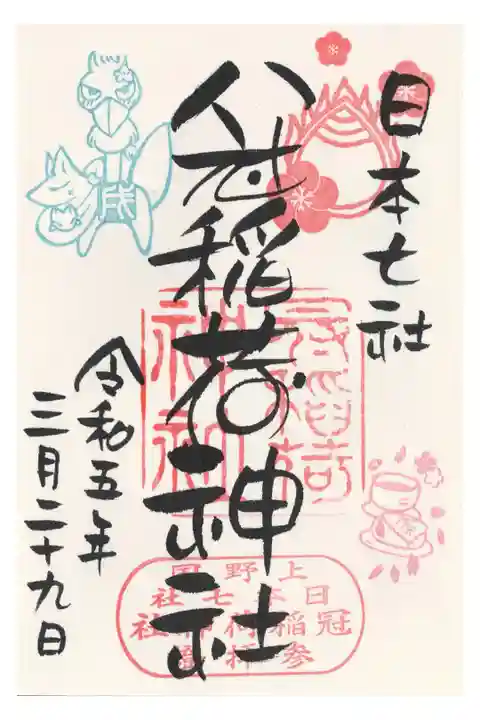 日本七社
冠稲荷神社
令和五年
三月二十九日
成
上野国
日本七社
冠稲荷神社
参拝